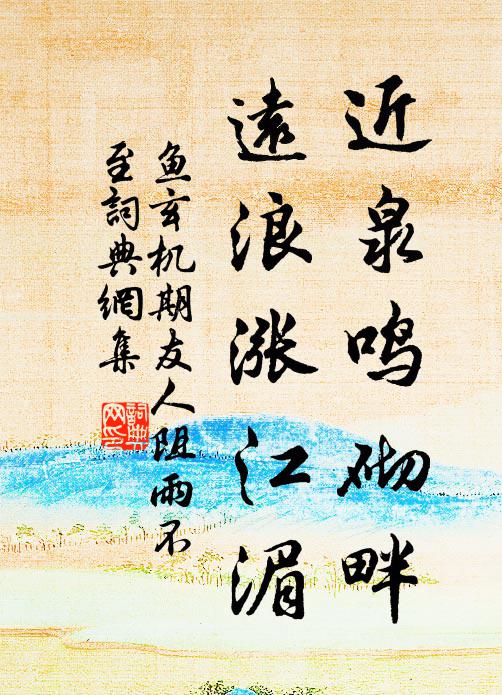 近泉鸣砌畔
遠浪涨江湄
鱼玄机期友人阻雨不
至詞典網集
詞典网气